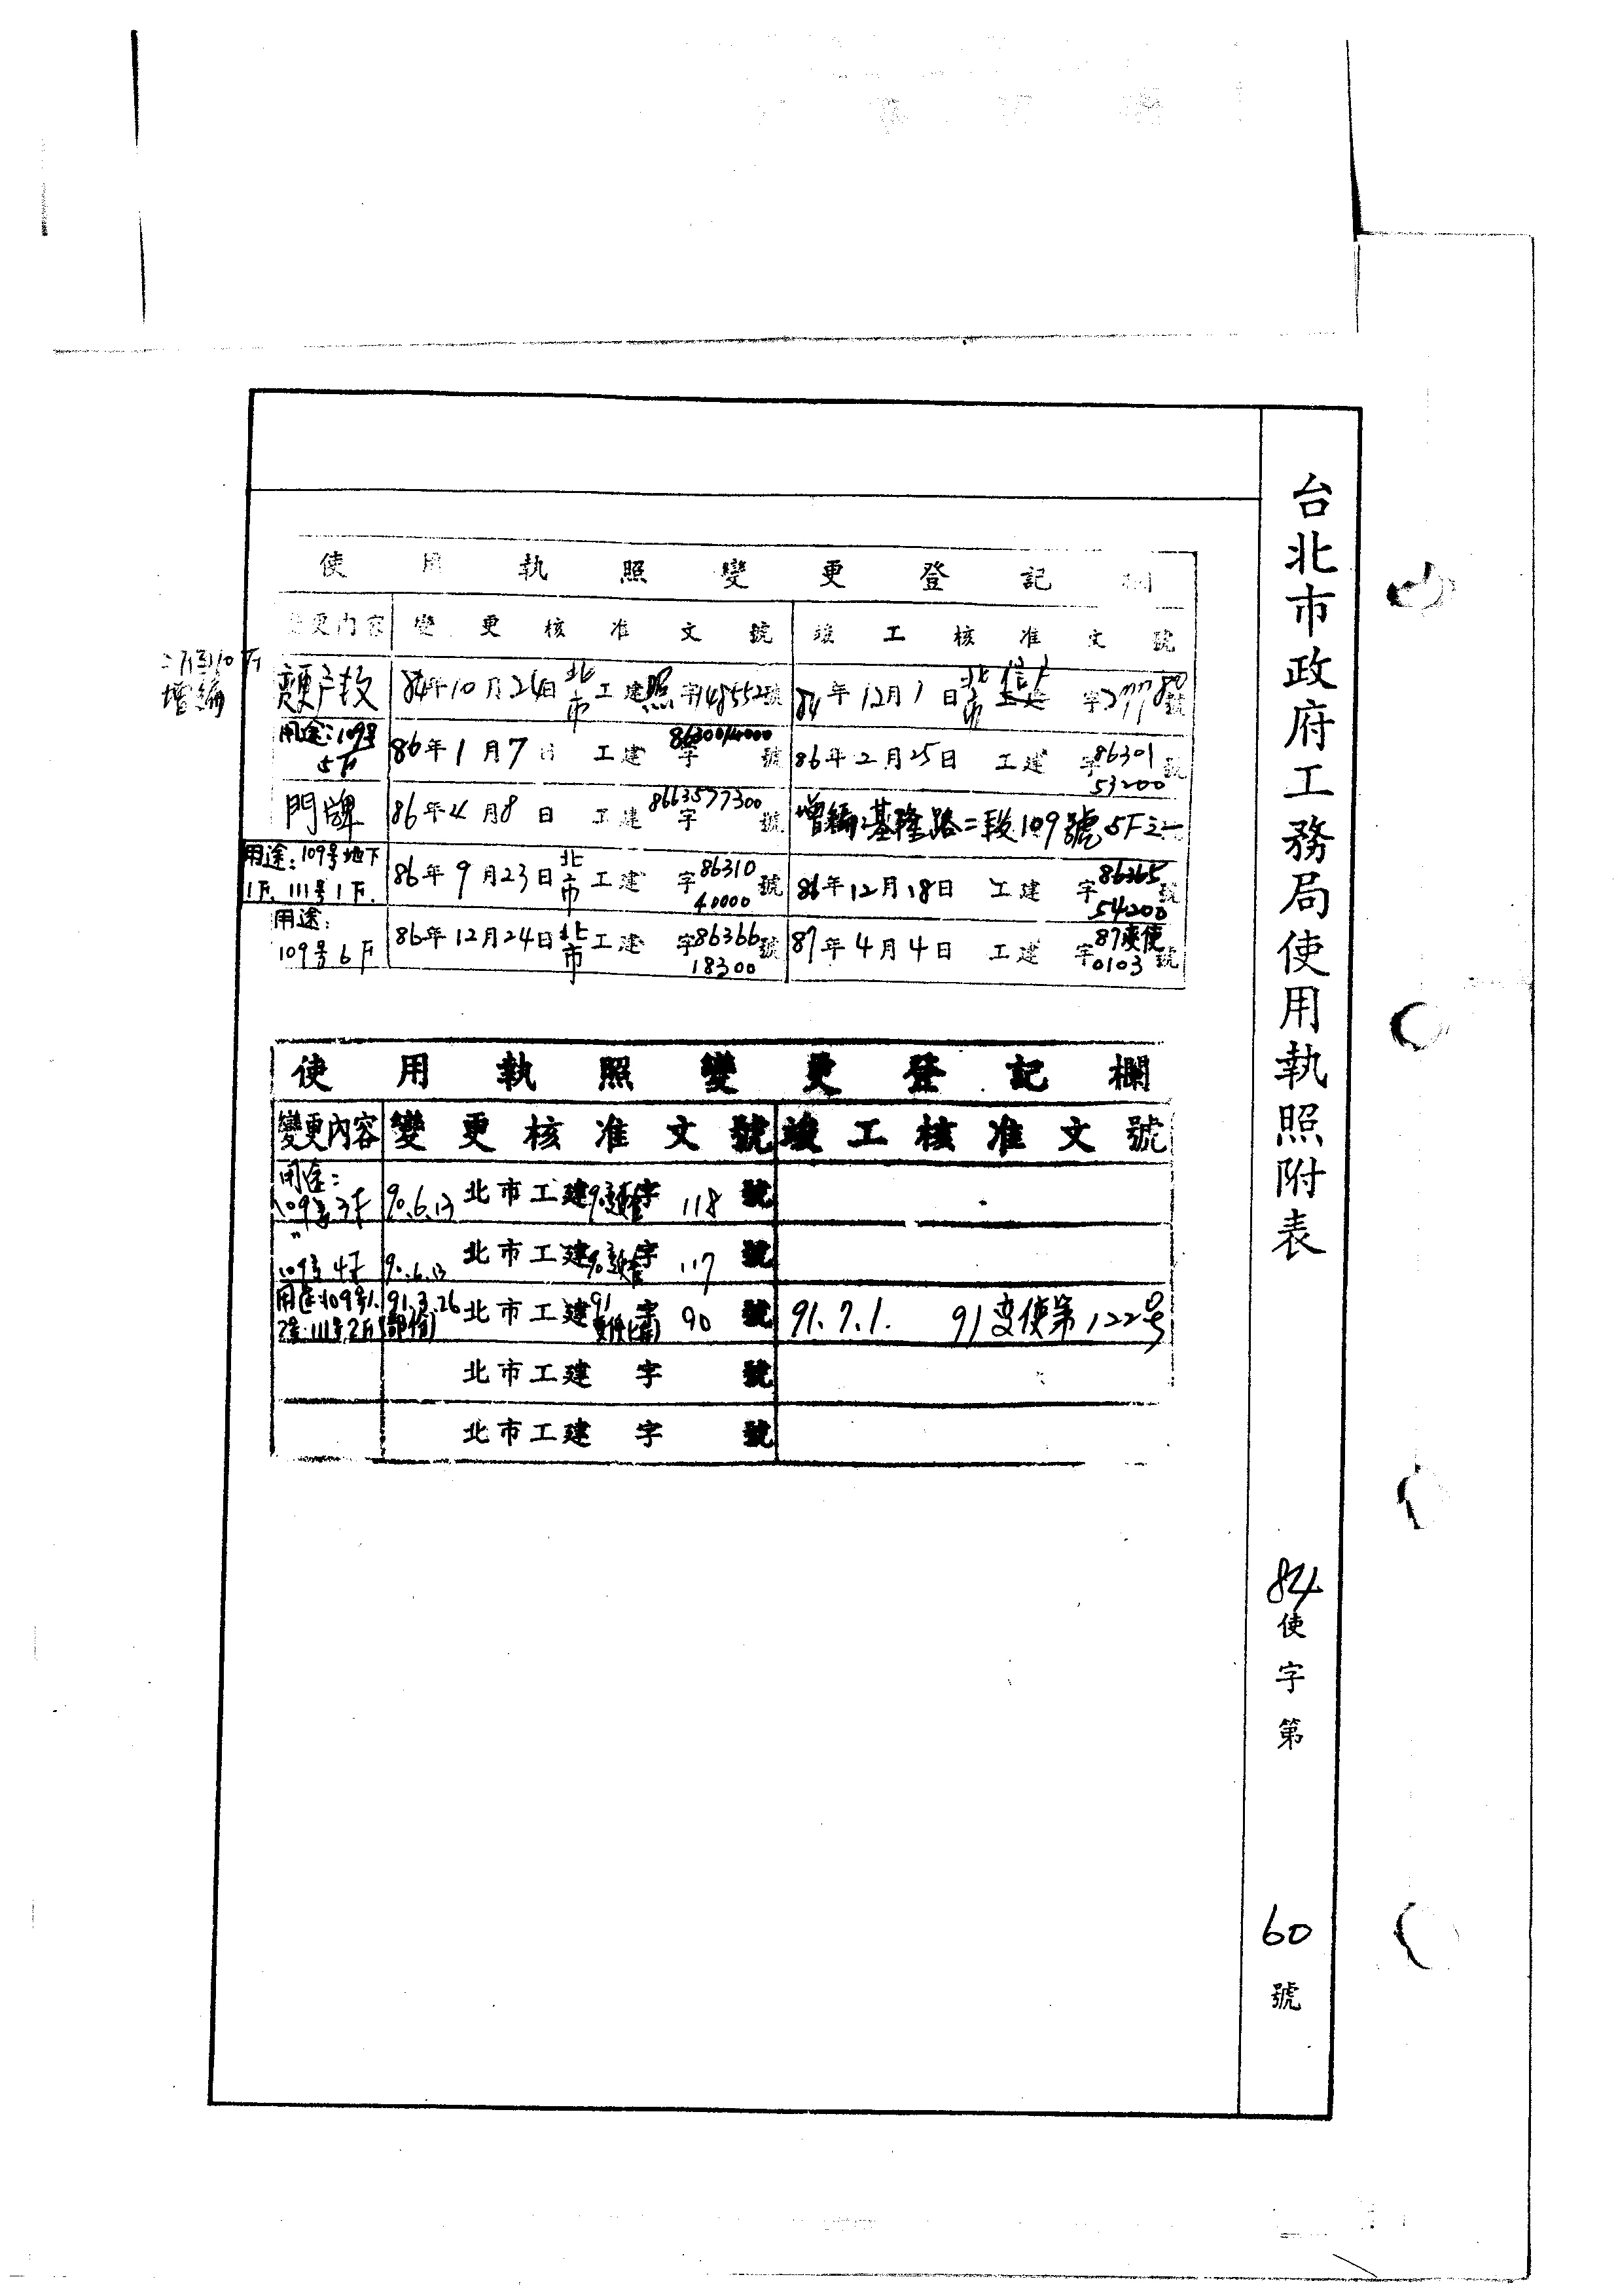 台北市政府工務局使用執照附表
84使字第60號
使用執照變更登記欄
變更內容 變更核准文號 竣工核准文號
增編
變更戶數 84年10月24日 北市工建照字148552號 84年12月1日 北市
用途:109号5F 86年1月7日 工建字8630014000號 86年2月25日 工建字8630153200號
門牌 86年4月8日 工建字8663577300號 增編:基隆路二段109號5F之一
用途:109号地下1F.111号1F. 86年9月23日 北市工建字8631040000號 86年12月18日 工建字8636554200號
用途:109号6F 86年12月24日 北市工建字8636618300號 87年4月4日 工建字87變使0103號
使用執照變更登記欄
變更內容 變更核准文號 竣工核准文號
用途:109号3F 90.6.13 北市工建字118號
〃109号4F 90.6.13 北市工建字117號
用途:109号1. 111号2F 91.3.26 北市工建91字90號 91.7.1. 91变使第122号
北市工建 字 號
北市工建 字 號